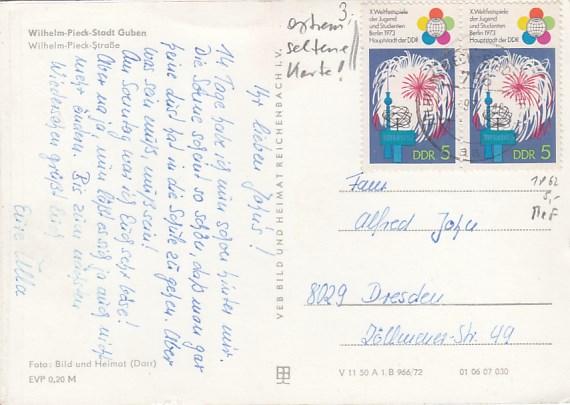 Wilhelm-Pieck-Stadt Guben
Wilhelm-Pieck-Straße
Ihr lieben Johns!
14 Tage habe ich nun schon hinter mir.
Die Sonne scheint so schön, daß man gar
keine Lust hat in die Schule zu gehen. Aber
was sein muß, muß sein!
Am Sonntag war ich Euch sehr böse!
Aber na ja, nun läßt es sich ja auch nicht
mehr ändern. Bis zum nächsten
Wiedersehen grüßt Euch
Eure Ulla
Foto: Bild und Heimat (Darr)
EVP 0,20 M
VEB BILD UND HEIMAT REICHENBACH I. V.
3.
extrem
seltene
Karte!
X. Weltfestspiele
der Jugend
und Studenten
Berlin 1973
Hauptstadt der DDR
DDR 5
X. Weltfestspiele
der Jugend
und Studenten
Berlin 1973
Hauptstadt der DDR
DDR 5
1862
5,-
Fam.
Alfred John
8029 Dresden
Zöllmener-Str. 49
V 11 50 A 1. B 966/72
01 06 07 030